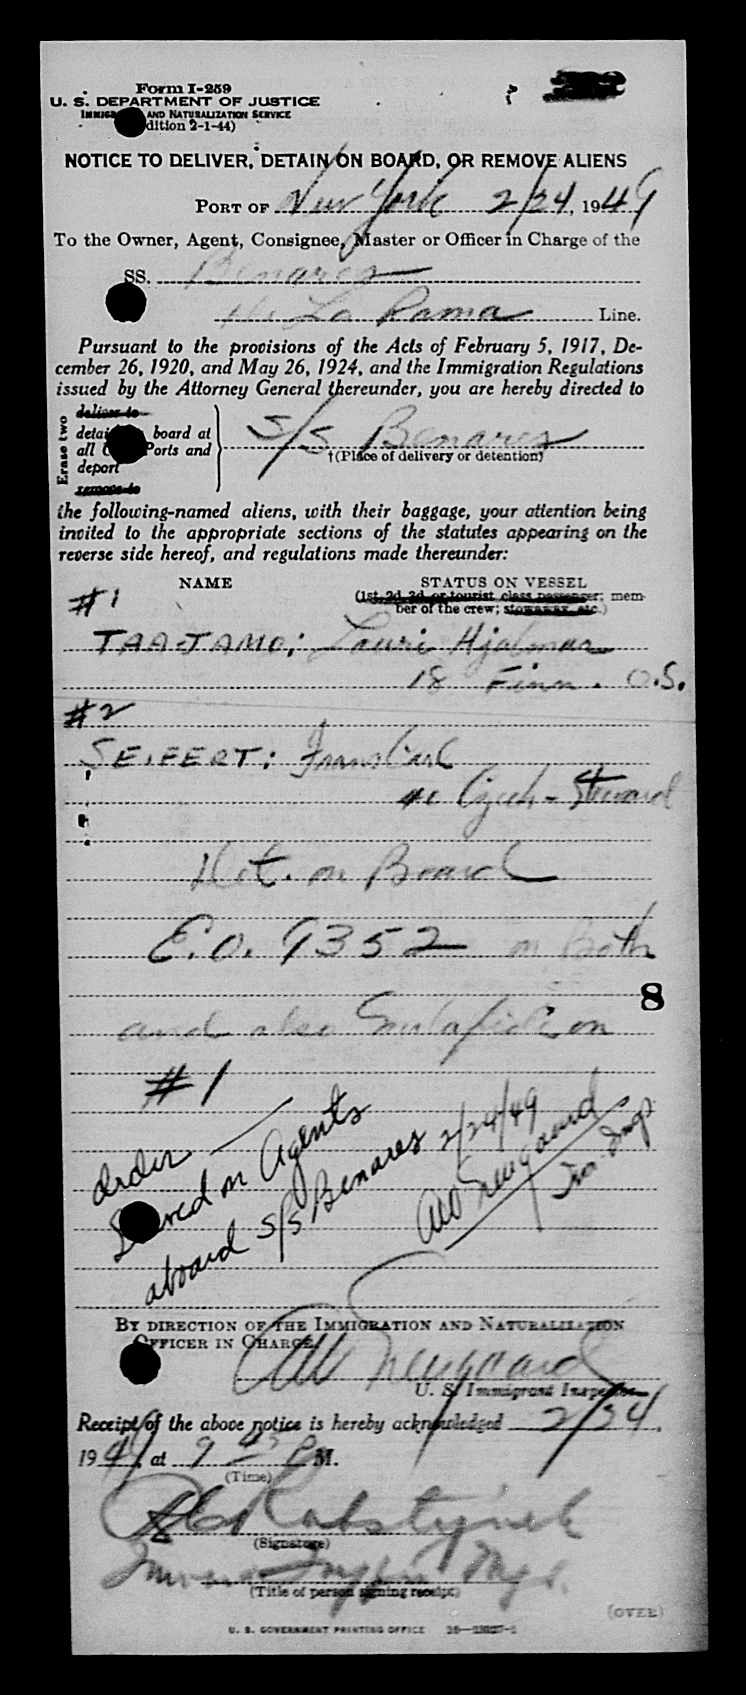 Form I-259
U. S. DEPARTMENT OF JUSTICE
IMMIGRATION AND NATURALIZATION SERVICE
(Edition 2-1-44)
NOTICE TO DELIVER, DETAIN ON BOARD, OR REMOVE ALIENS
PORT OF New York 2/24, 1949
To the Owner, Agent, Consignee, Master or Officer in Charge of the
SS. Benares
La Rama Line.
Pursuant to the provisions of the Acts of February 5, 1917, De-
cember 26, 1920, and May 26, 1924, and the Immigration Regulations
issued by the Attorney General thereunder, you are hereby directed to
Erase two
deliver to
detain on board at
all U. S. Ports and
deport
remove to
S/S Benares
†(Place of delivery or detention)
the following-named aliens, with their baggage, your attention being
invited to the appropriate sections of the statutes appearing on the
reverse side hereof, and regulations made thereunder:
NAME STATUS ON VESSEL
(1st, 2d, 3d, or tourist class passenger; mem-
ber of the crew; stowaway, etc.)
#1
TAAJAMO; Lauri Hjalmar
18 Finn. O.S.
#2
SEIFERT: Franz Carl
41 Czech - Steward
Det. on Board
E.O. 9352 on Both
8
and also Malafide on
#1
Order
Served on Agents
aboard S/S Benares 2/24/49
Imm. Insp.
BY DIRECTION OF THE IMMIGRATION AND NATURALIZATION
OFFICER IN CHARGE
U. S. Immigrant Inspector
Receipt of the above notice is hereby acknowledged 2/24,
1949, at 9 45 P M.
(Time)
(Signature)
(Title of person signing receipt)
(OVER)
U. S. GOVERNMENT PRINTING OFFICE